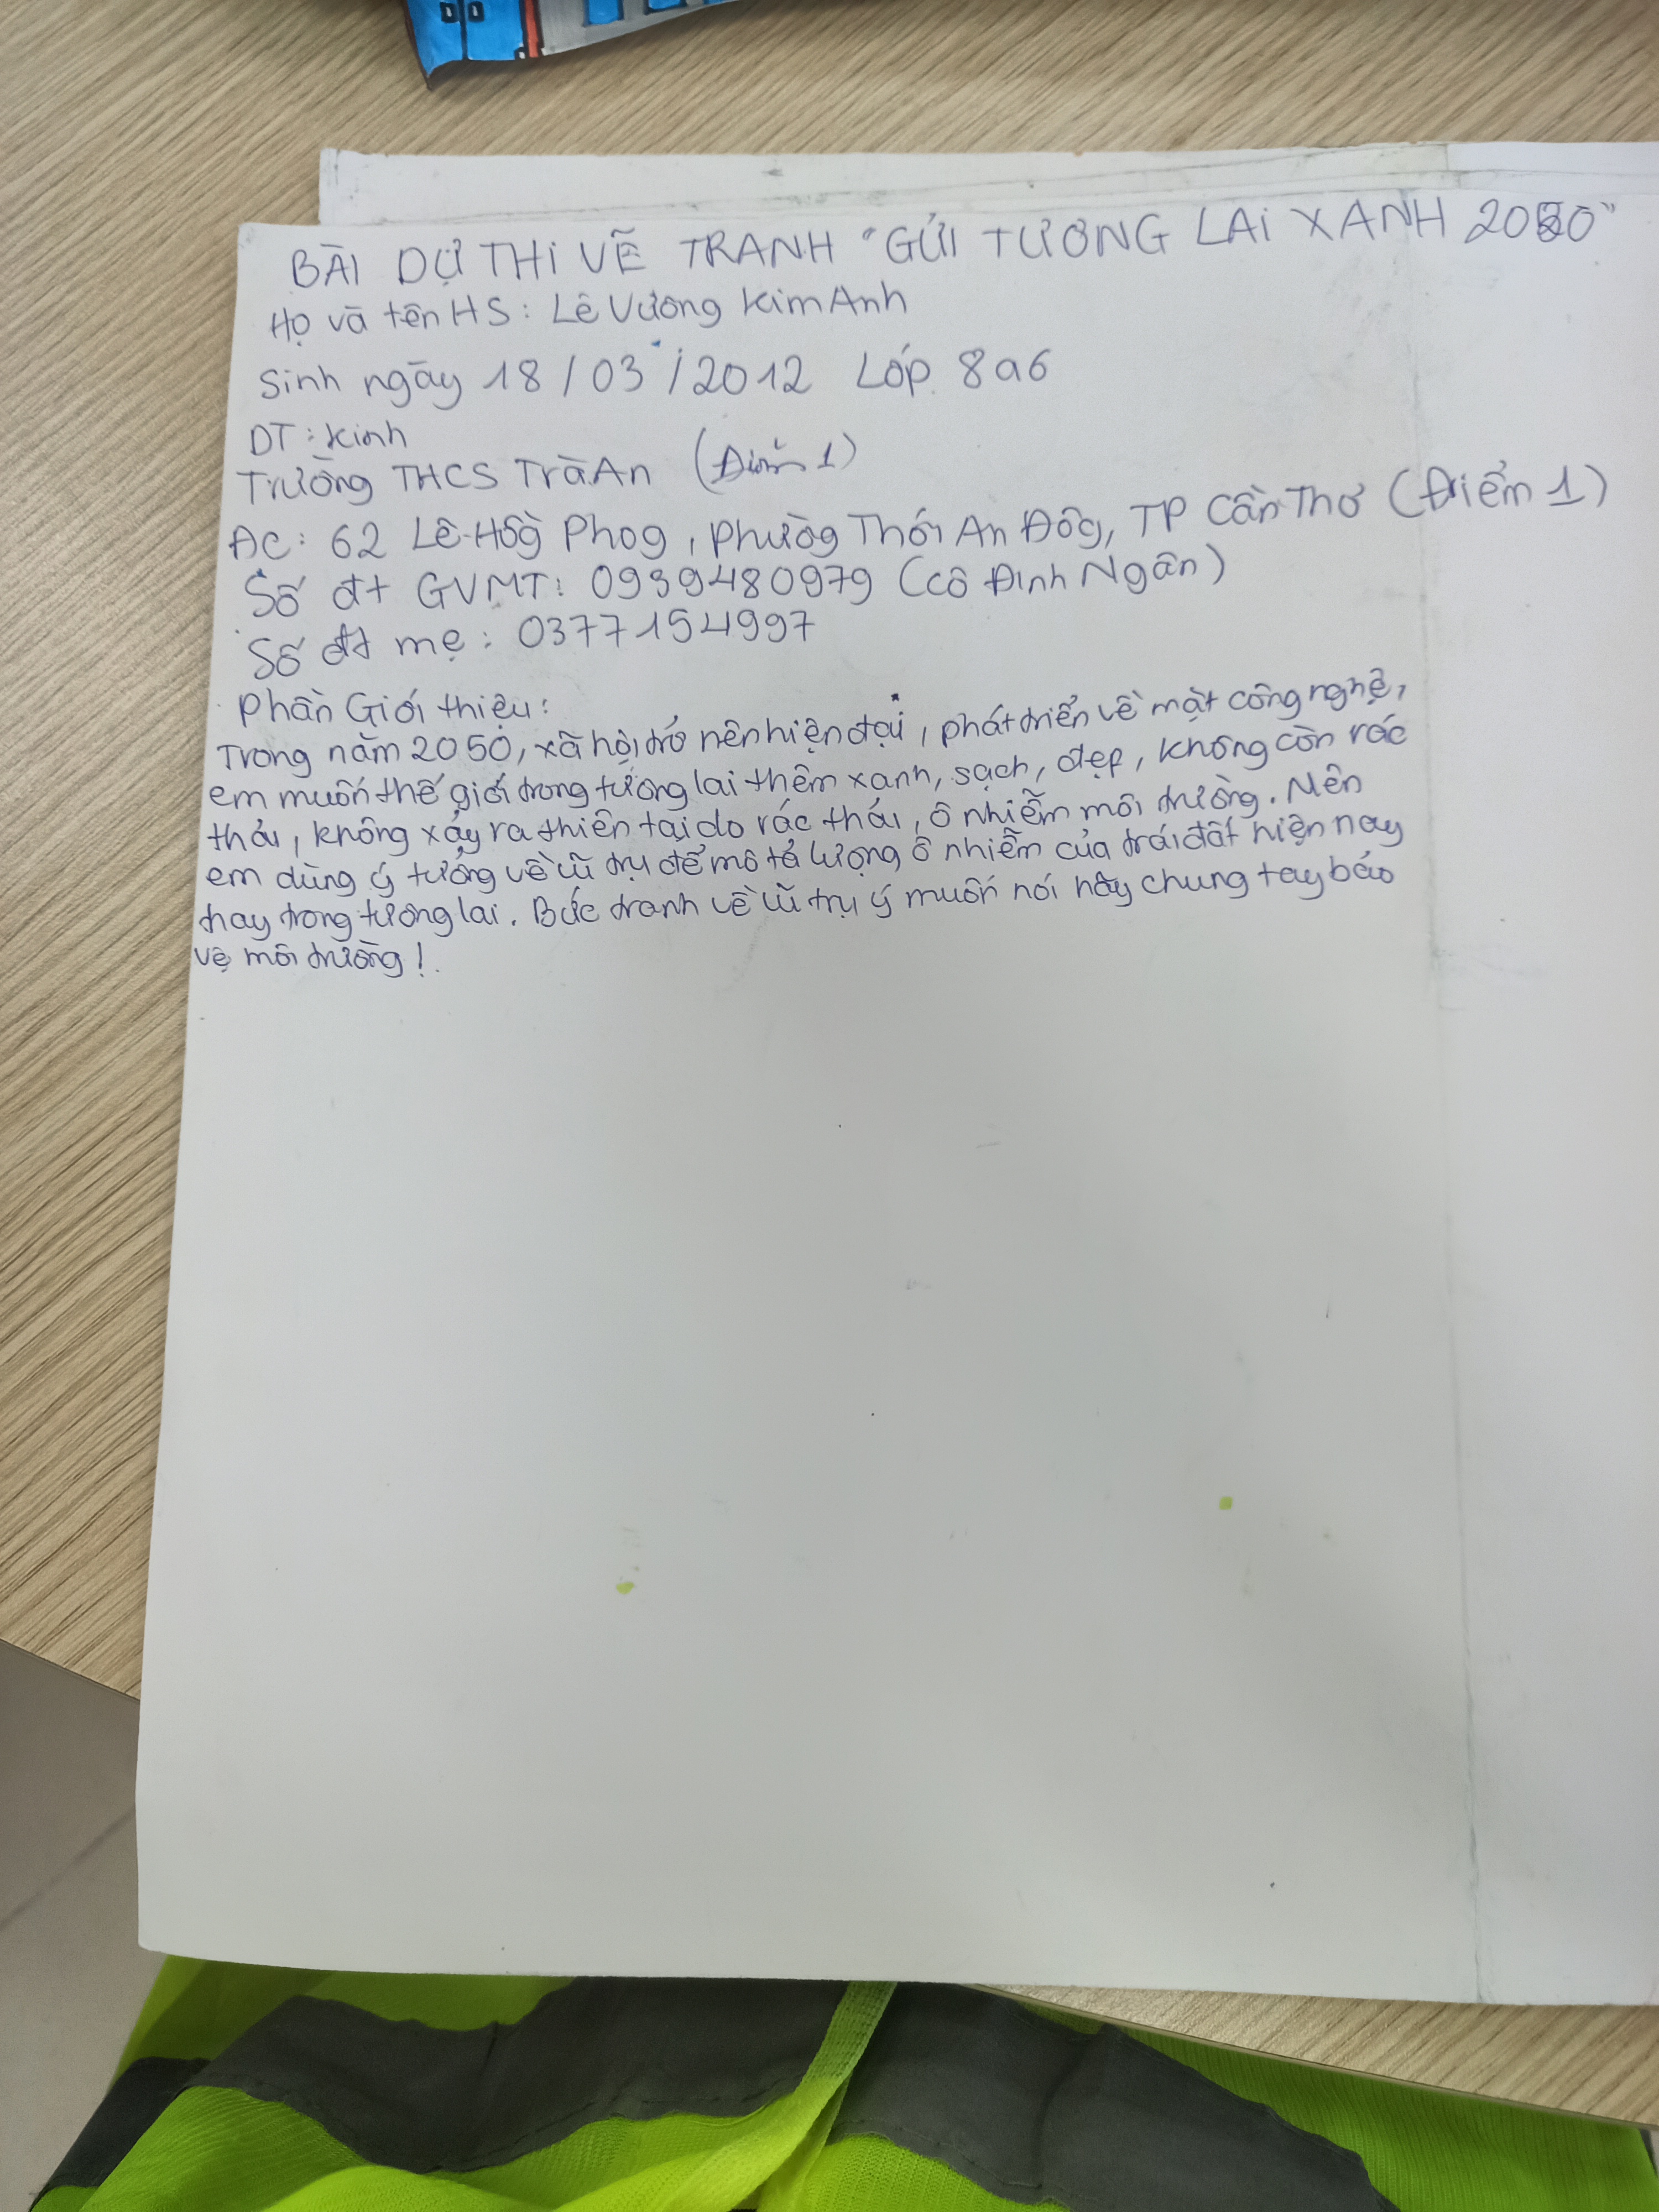 BÀI DỰ THI VẼ TRANH "GỬI TƯƠNG LAI XANH 2050"
Họ và tên HS: Lê Vương Kim Anh
Sinh ngày 18/03/2012 Lớp 8a6
DT: Kinh
Trường THCS Trà An (Điểm 1)
ĐC: 62 Lê Hồg Phog, Phườg Thới An Đôg, TP Cần Thơ (Điểm 1)
Số đt GVMT: 0939480979 (cô Đinh Ngân)
Số đt mẹ: 0377154997
Phần Giới thiệu:
Trong năm 2050, xã hội trở nên hiện đại, phát triển về mặt công nghệ,
em muốn thế giới trong tương lai thêm xanh, sạch, đẹp, không còn rác
thải, không xảy ra thiên tai do rác thải, ô nhiễm môi trường. Nên
em dùng ý tưởng về vũ trụ để mô tả lượng ô nhiễm của trái đất hiện nay
hay trong tương lai. Bức tranh về vũ trụ ý muốn nói hãy chung tay bảo
vệ môi trường!